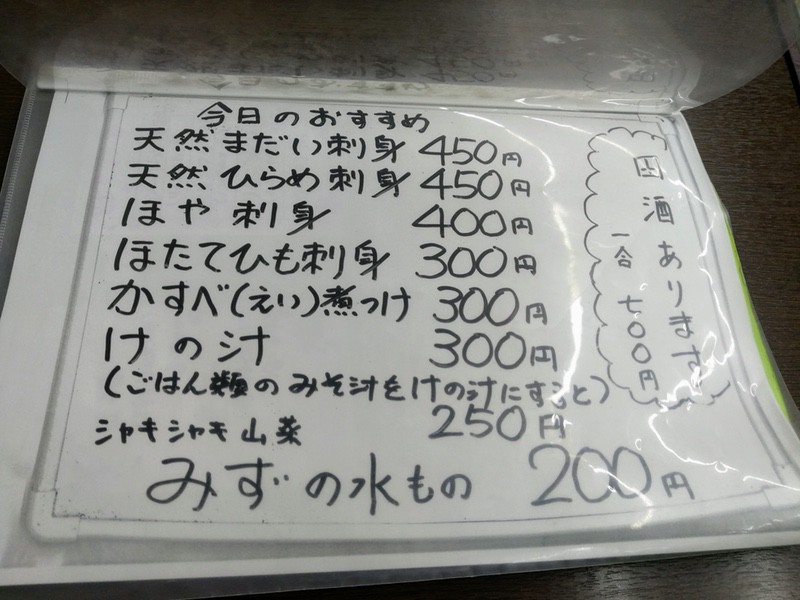 今日のおすすめ
天然まだい刺身 450円
天然ひらめ刺身 450円
ほや刺身 400円
ほたてひも刺身 300円
かすべ(えい)煮つけ 300円
けの汁 300円
(ごはん類のみそ汁をけの汁にすると)
250円
シャキシャキ山菜
みずの水もの 200円
田酒あります
一合 七〇〇円